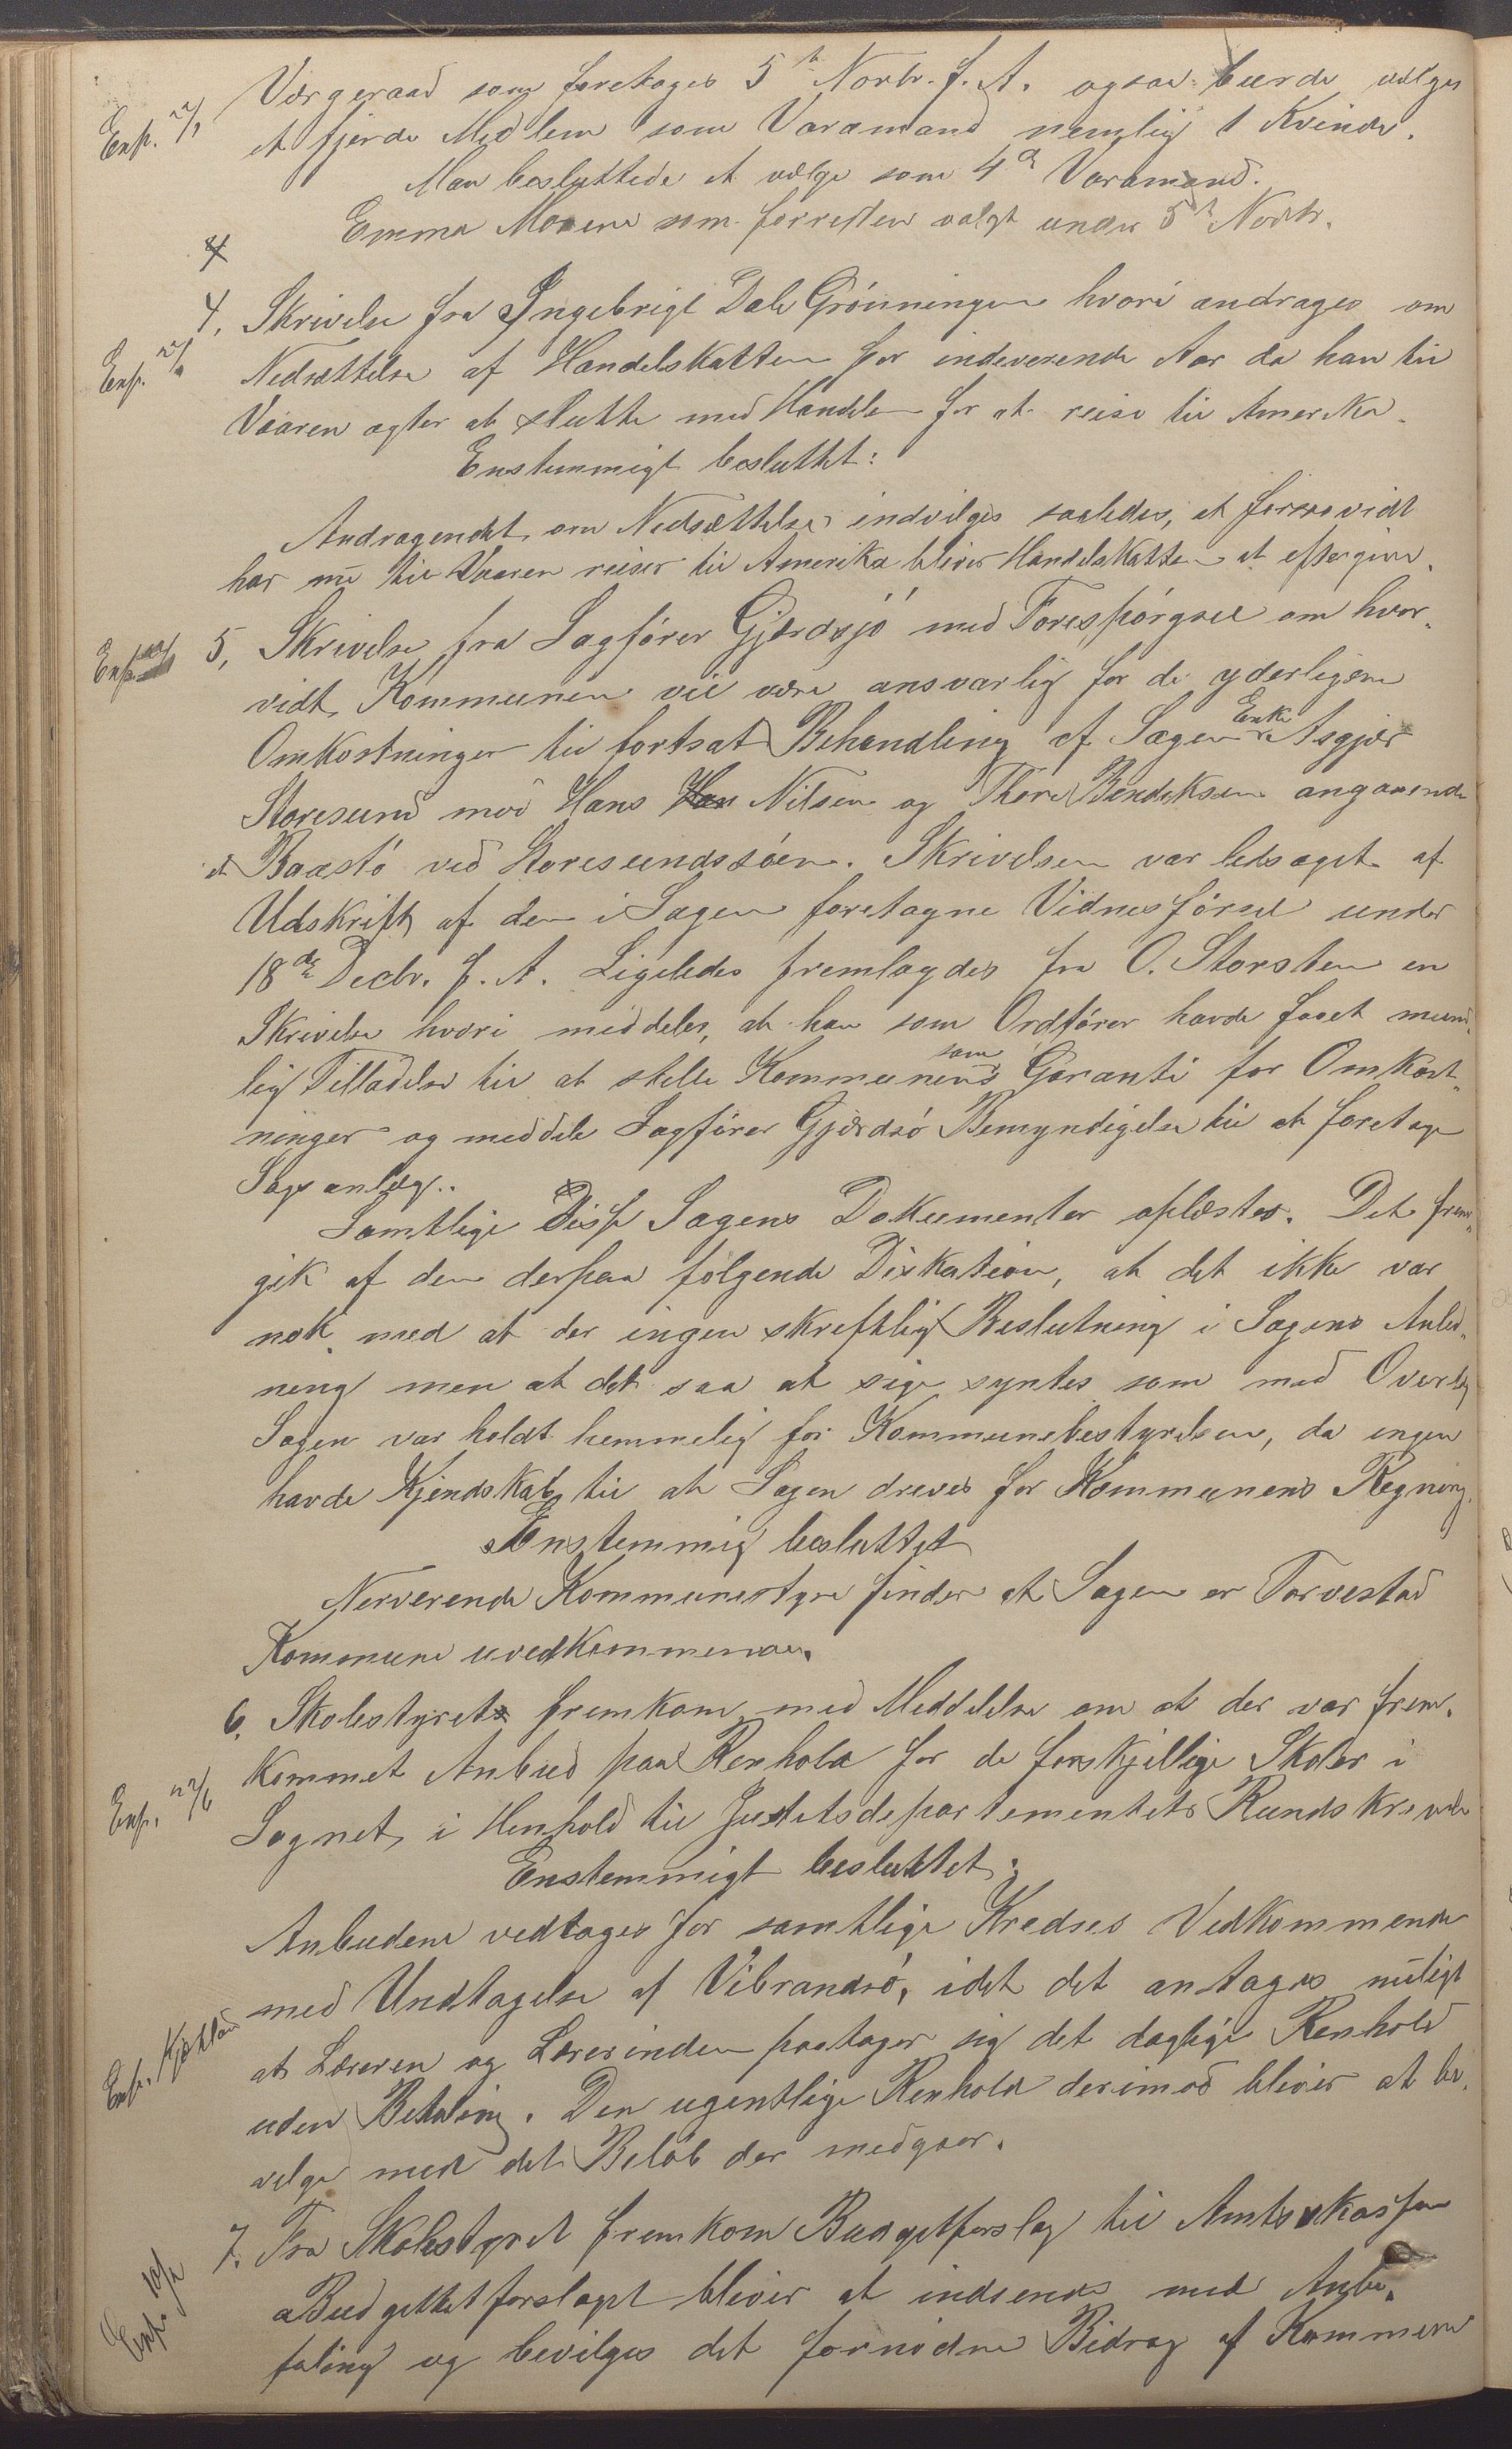 Værgeraad som foretoges 5te Novbr. f. A. ogsaa burde vælges
Exp.
et fjerde Medlem som Varamand nemlig 1 Kvinde.
Man besluttede at vælge som 4de Varamand.
Emma Moxene som forresten valgt under 5te Novbr.
4. Skrivelse fra Ingebrigt Dale Grönningen hvori andrages om
Exp.
Nedsættelse af Handelskatten for indeværende Aar da han til
Vaaren agter at slutte med Handelen for at reise til Amerika.
Enstemmigt besluttet:
Andragendet om Nedsættelse indvilges saaledes, at forsaavidt
han nu til Vaaren reiser til Amerika bliver Handelskatten at eftergive.
Exp.
5, Skrivelse fra Sagförer Gjerdsjö med Forespörgsel om hvor-
vidt Kommunen vil være ansvarlig for de yderligere
Omkostninger til fortsat Behandling af Sagen Enke Asgjer
Storesund mod Hans Nilsen og Thore Bendiksen angaaende
et Baastö ved Storesundssöen. Skrivelsen var ledsaget af
Udskrift af den i Sagen foretagne Vidnesförsel under
18de Decbr. f. A. Ligeledes fremlagdes fra O. Storsten en
Skrivelse hvori meddeles, at han som Ordförer havde faaet mund-
lig Tilladelse til at stille Kommunens som Garanti for Omkost-
ninger og meddele Sagförer Gjerdsö Bemyndigelse til at foretage
Sagsanlæg..
Samtlige Disse Sagens Dokumenter oplæstes. Det frem-
gik af den derpaa fölgende Diskution, at det ikke var
nok med at der ingen skreftlig Beslutning i Sagens Anled-
ning men at det saa at sige syntes som med Overlæg
Sagen var holdt hemmelig for Kommunebestyrelsen, da ingen
havde Kjendskab til at Sagen dreves for Kommunens Regning.
Enstemmig besluttet
Nerverende Kommunestyre finder at Sagen er Torvestad
Kommune uvedkommende.
6. Skolestyret fremkom med Meddelelse om at der var frem-
kommet Anbud paa Renhold for de forskjellige Skoler i
Exp.
Sognet, i Henhold til Justitsdepartementets Rundskrivelse
Enstemmigt besluttet:
Anbudene vedtages for samtlige Kredses Vedkommende
med Undtagelse af Vibrandsö, idet det antages muligt
Exp.
at Læreren og Lærerinden paatager sig det daglige Renhold
uden Betaling. Den ugentlige Renhold derimod bliver at be-
vilge med det Belöb der medgaar.
7. Fra Skolestyret fremkom Budgetforslag til Amtsskolekassen
Budgettetforslaget bliver at indsende med Anbe-
Exp. 10/2
faling og bevilges det fornödne Bidrag af Kommunen